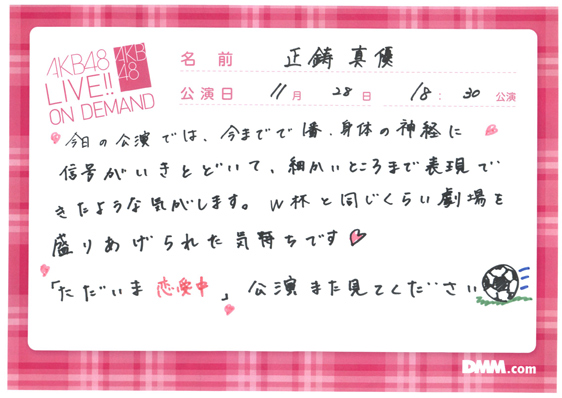 AKB48
LIVE!!
ON DEMAND
AKB
48
名前 正鋳真優
公演日 11月 28日 18:30 公演
今日の公演では、今までで1番、身体の神経に
信号がいきとどいて、細かいところまで表現で
きたような気がします。W杯と同じくらい劇場を
盛りあげられた気持ちです
「ただいま恋愛中」公演また見てください
DMM.com